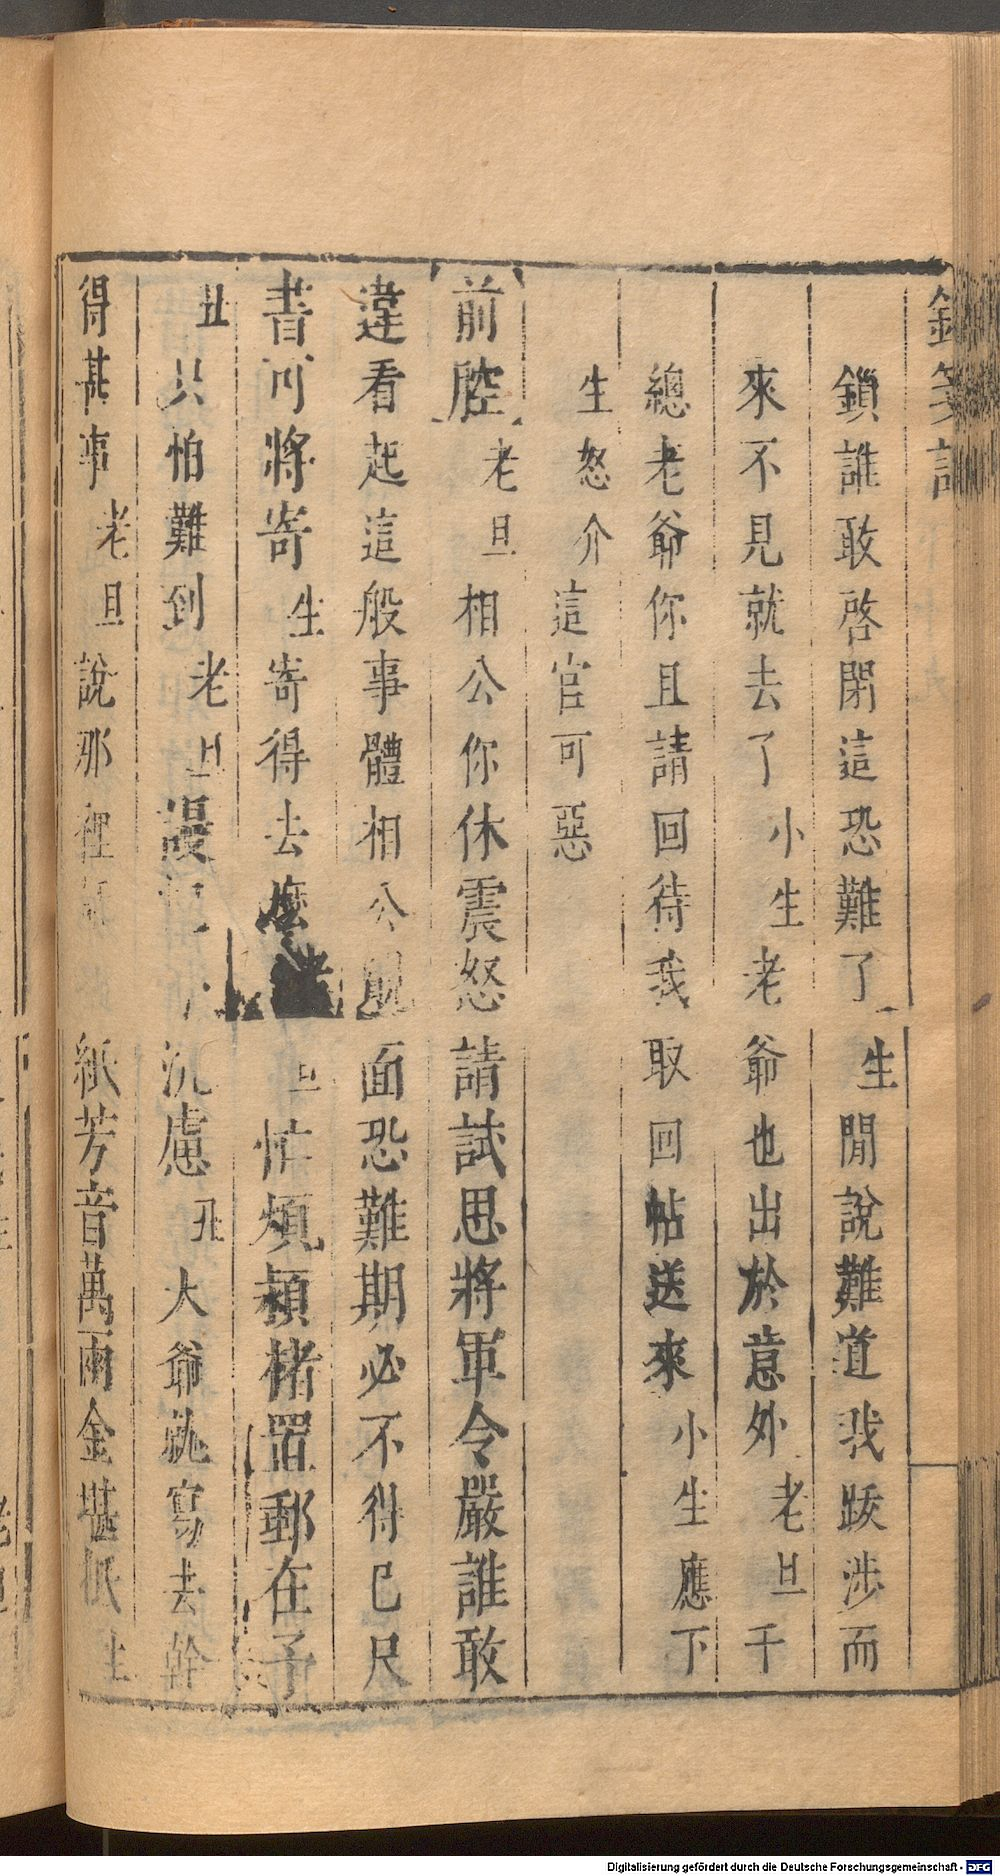 鎖誰敢啓閉這恐難了生閒說難道我跋涉而
來不見就去了小生老爺也出於意外老旦千
總老爺你且請回待我取回帖送來小生應下
生怒介這官可惡
前腔老旦相公你休震怒請試思將軍令嚴誰敢
違看起這般事體相公面恐難期必不得已尺
書可將寄生寄得去麼旦忙煩潁楮置郵在予
丑只怕難到老旦謾沉慮丑大爺就寫去幹
得甚事老旦說那裡紙芳音萬兩金堪抵生
Digitalisierung gefördert durch die Deutsche Forschungsgemeinschaft - DFG